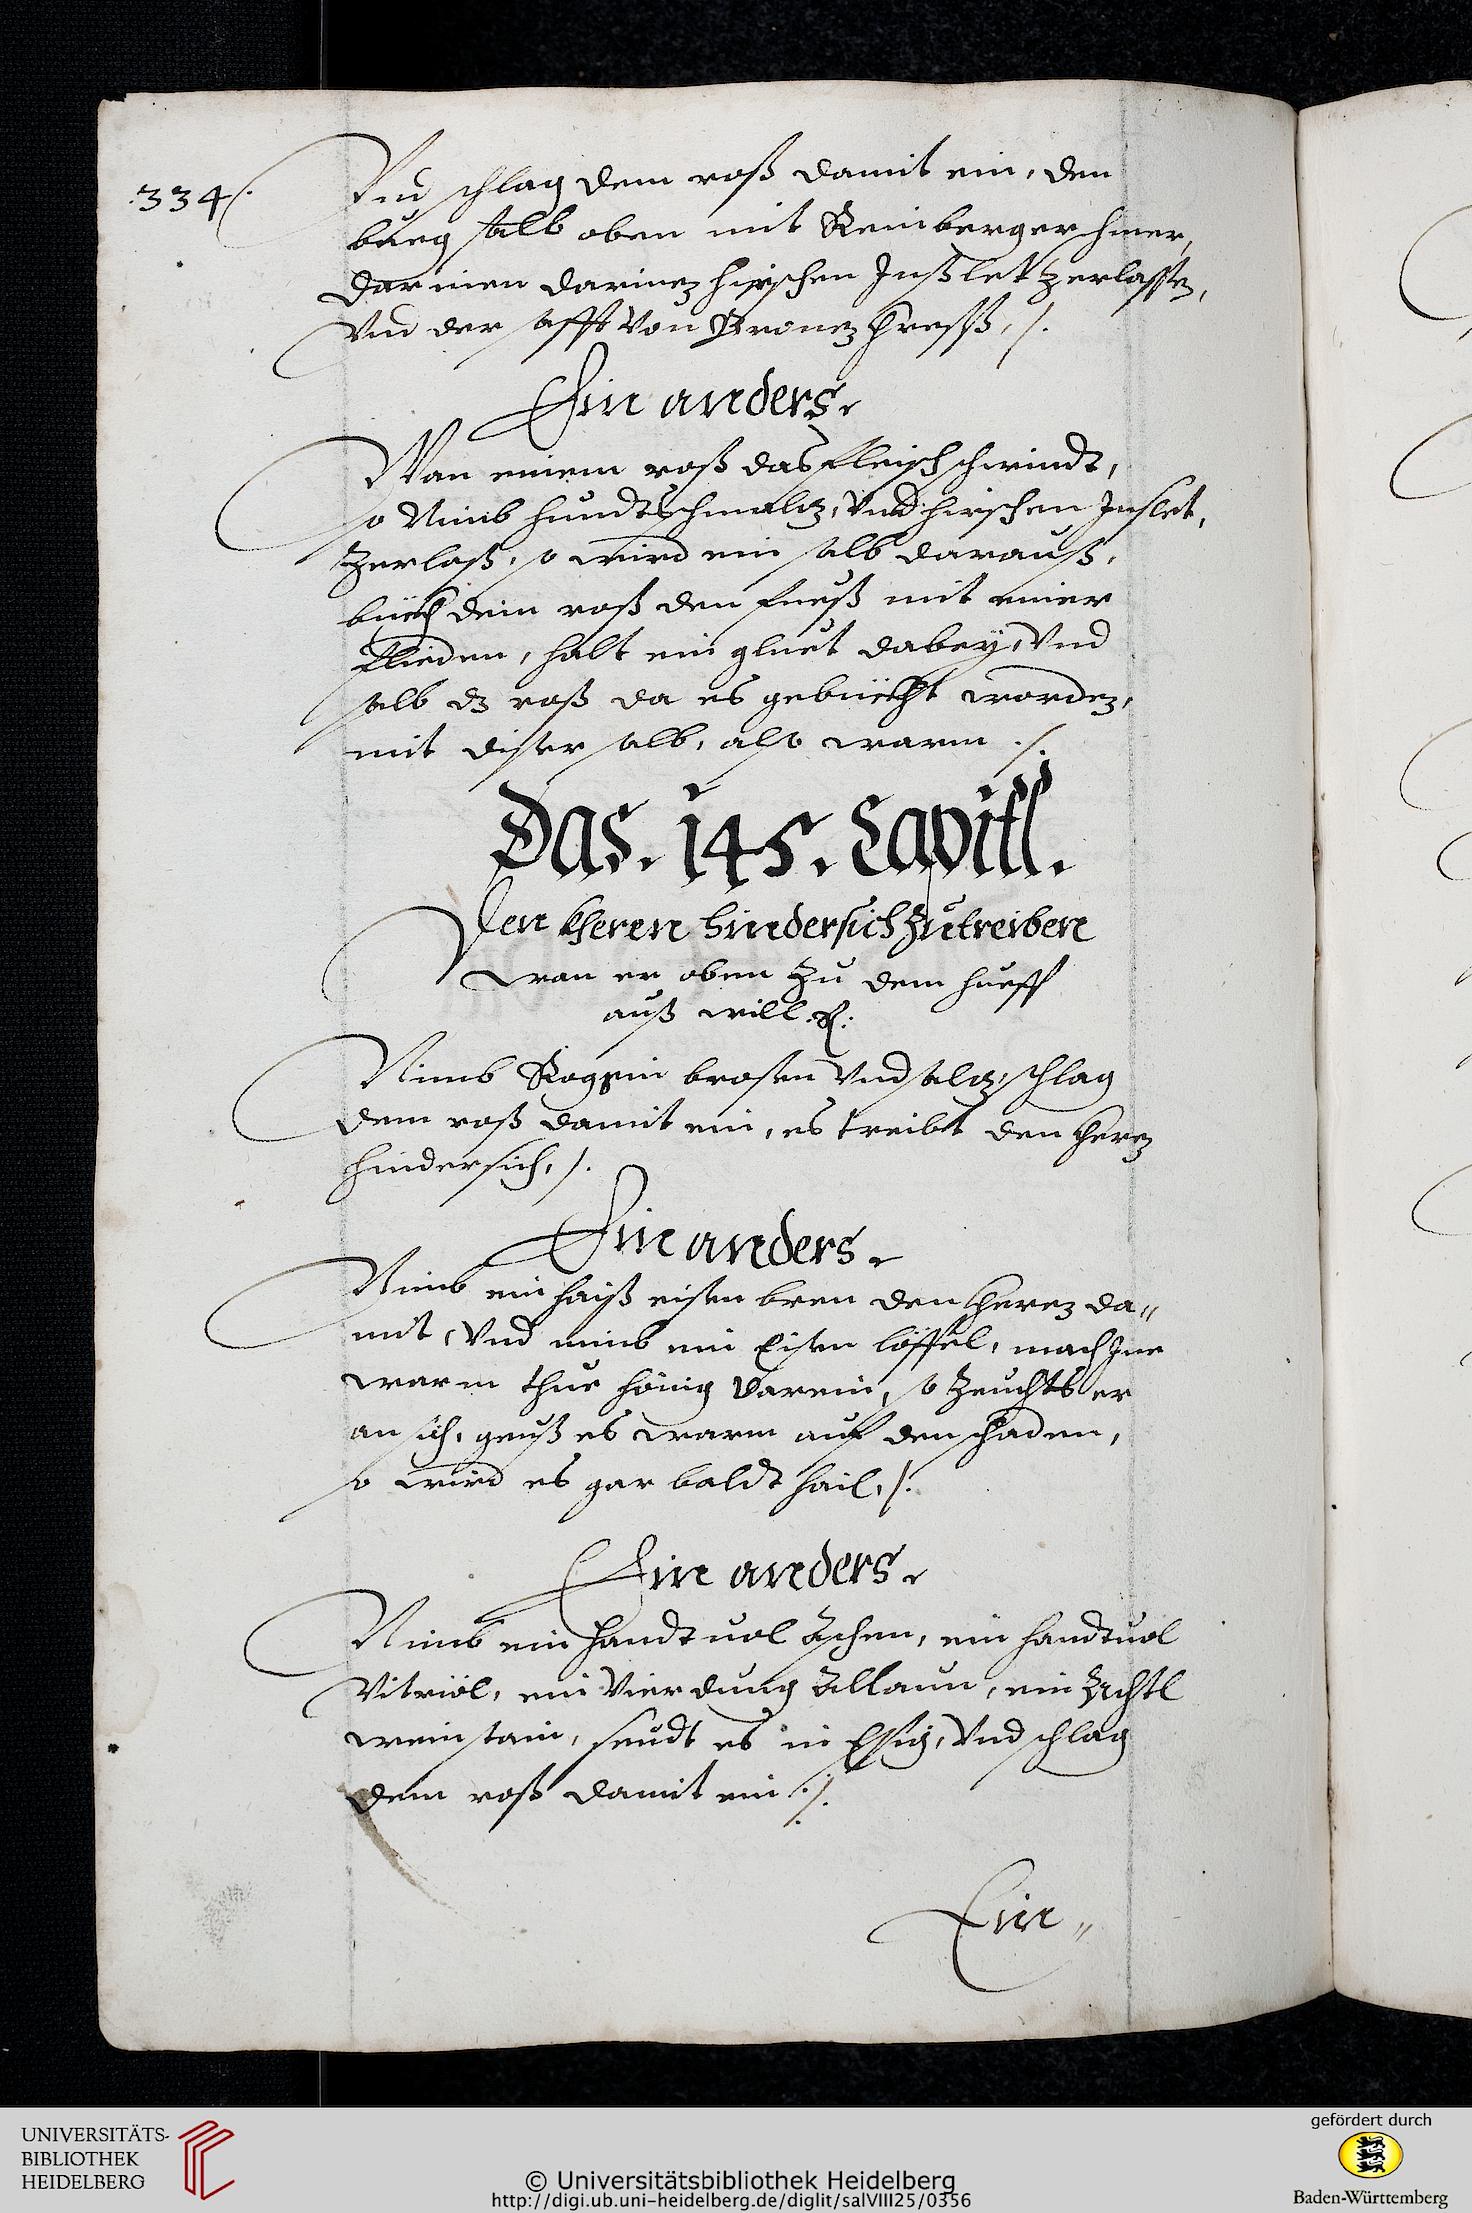 .334.
Und schlag dem roß damit ein, den
bueg salb oben mit Reinberger schmer,
dar innen darinez hirschen Inßlet zerlassez,
Und der safft von Bronez Kreß, /.
Ein anders.
Wan einem roß das fleisch schwindt,
so Nimb hundtschmalz, Und hirschen Inslet,
zerlaß, so wird ein salb darauß,
büeck dein roß den fueß mit einer
flieden, halt ein gluet dabey, Und
salb dz roß da es gebüeckht wordez,
mit diser salb, also warm ./.
Das. 145. Capitl.
Den Kheren hindersich Zutreiben
wan er oben zu dem hueff
auß will.
Nimb Roggin brosen Und salz, schlag
dem roß damit ein, es treibt den Kherez
hindersich, /.
Ein anders.
Nimb ein haiß eisen bren den Kherez da„
mit, Und nimb ein Eisen löffel, mach Ine
warm thue hönig darein, so zeuchts er
an sich, geuß es warm auf den schaden,
so wird es gar baldt hail, /.
Ein anders.
Nimb ein handt uol Äschen, ein handtuol
Vitriöl, ein Vierdung Allaun, ein Achtl
weinstain, seudt es in Essig, Und schlag
dem roß damit ein ./.
Ein„
UNIVERSITÄTS-
BIBLIOTHEK
HEIDELBERG
© Universitätsbibliothek Heidelberg
http://digi.ub.uni-heidelberg.de/diglit/salVIII25/0356
gefördert durch
Baden-Württemberg